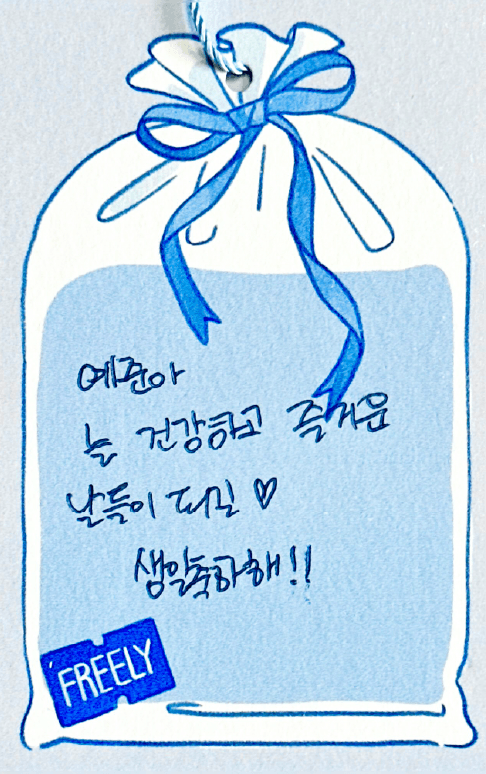 예준아
늘 건강하고 즐거운
날들이 되길 ♡
생일축하해!!
FREELY